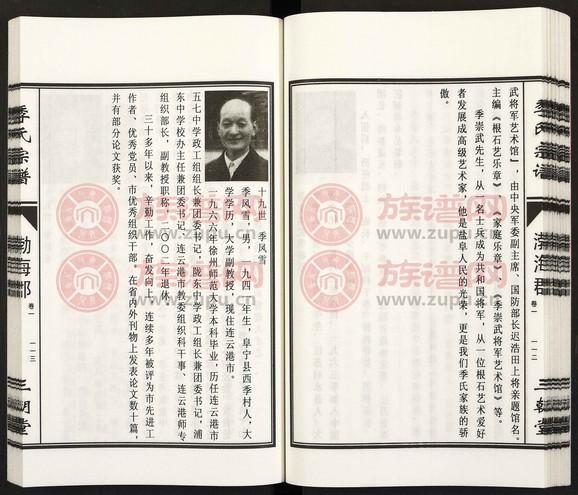 武将军艺术馆》，由中央军委副主席、国防部长迟浩田上将亲题馆名。
主编《根石艺乐章》《家庭乐章》《季崇武将军艺术馆》等。
季崇武先生，从一名士兵成为共和国将军，从一位根石艺术爱好
者发展成高级艺术家，他是故阜人民的光荣，更是我们季氏家族的骄
傲。
季氏宗谱
渤海郡
卷一
一一二
三朝堂
十九世 季风雪
季风雪，男，一九四一年生，阜宁县西季村人，大
学学历，大学副教授，现住连云港市。
一九六六年徐州师范大学本科毕业，历任连云港市
五七中学政工组组长兼团委书记，陇东中学政工组组长兼团委书记，浦
东中学校办主任兼团委书记、连云港市教委组织科干事、连云港师专
组织部长，副教授职称，二〇〇二年退休。
三十多年以来，辛勤工作，奋发向上，连续多年被评为市先进工
作者、优秀党员、市优秀组织干部，在省内外刊物上发表论文数十篇，
并有部分论文获奖。
季氏宗谱
渤海郡
卷一
一一三
三朝堂
族谱网
www.zupu.cn
族谱网
www.zupu.cn